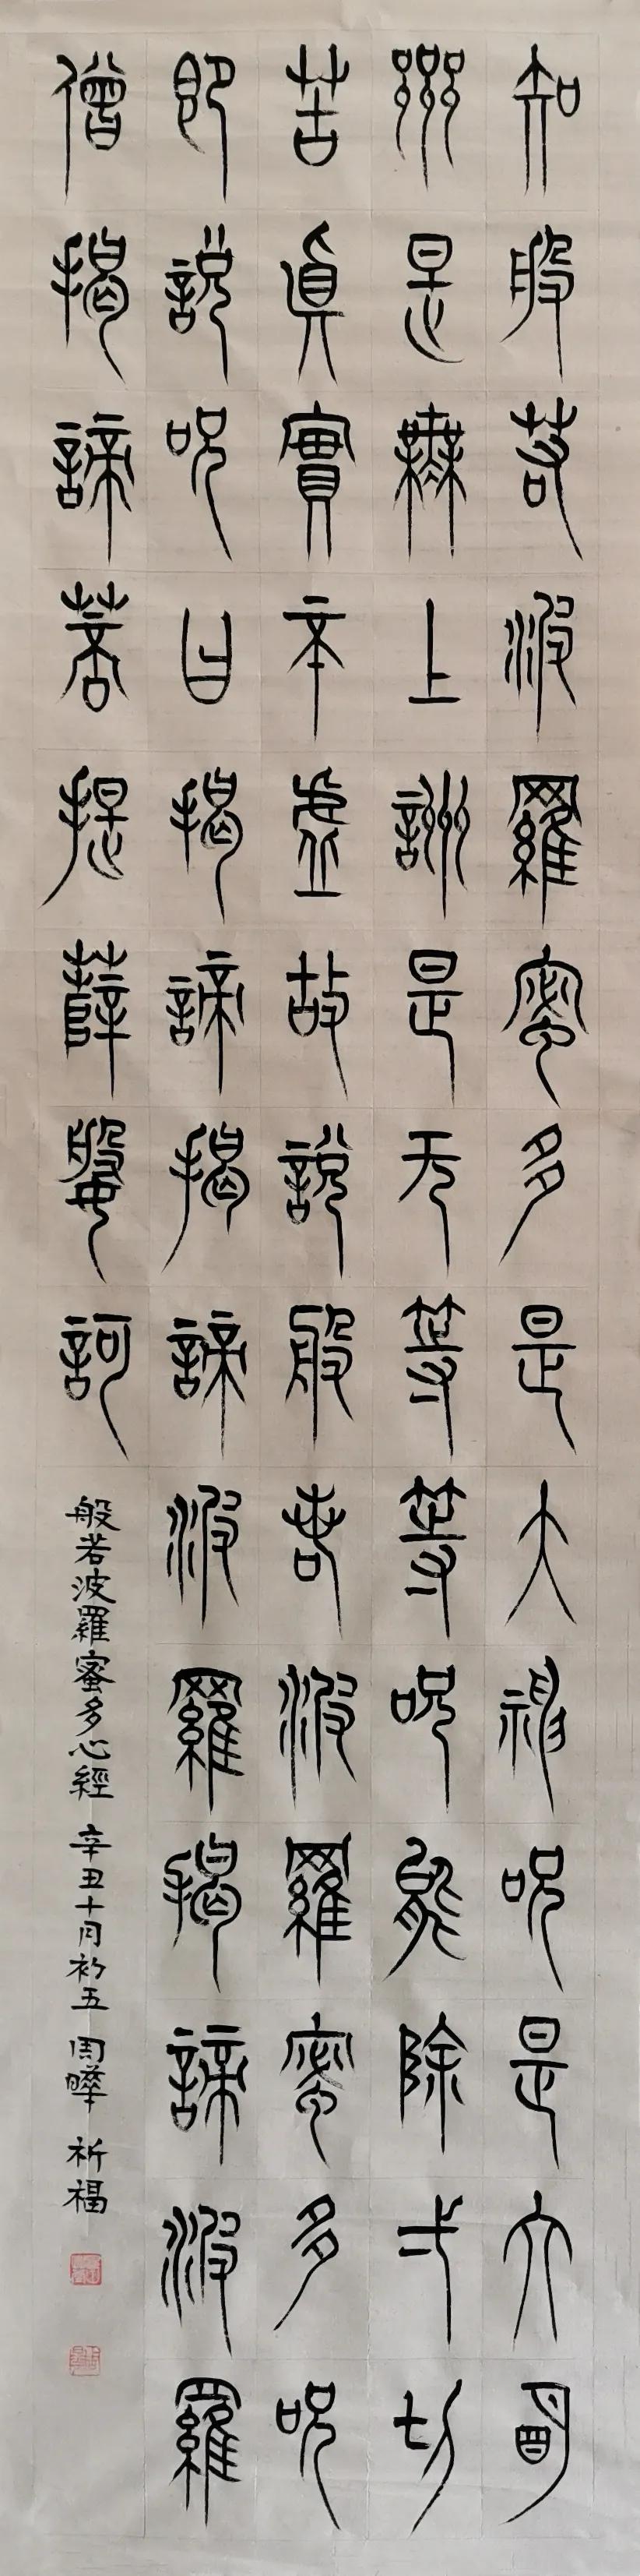 知般若波羅蜜多是大神呪是大明
呪是無上詶是无等等呪能除弌切
苦真實不虛故說般若波羅蜜多呪
即說呪曰揭諦揭諦波羅揭諦波羅
僧揭諦菩提薩婆訶
般若波羅蜜多心經 辛丑十月初五 周曄 祈福